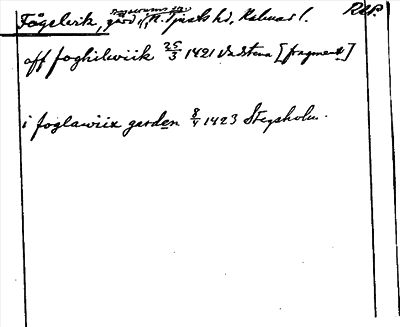 Fågelvik, gård, N. Tjusts hd, Kalmar l. RAP.
off foghilwiik 25/3 1421 Vadstena [fragment]
i foglawiix garden 8/4 1423 Stegeholm.